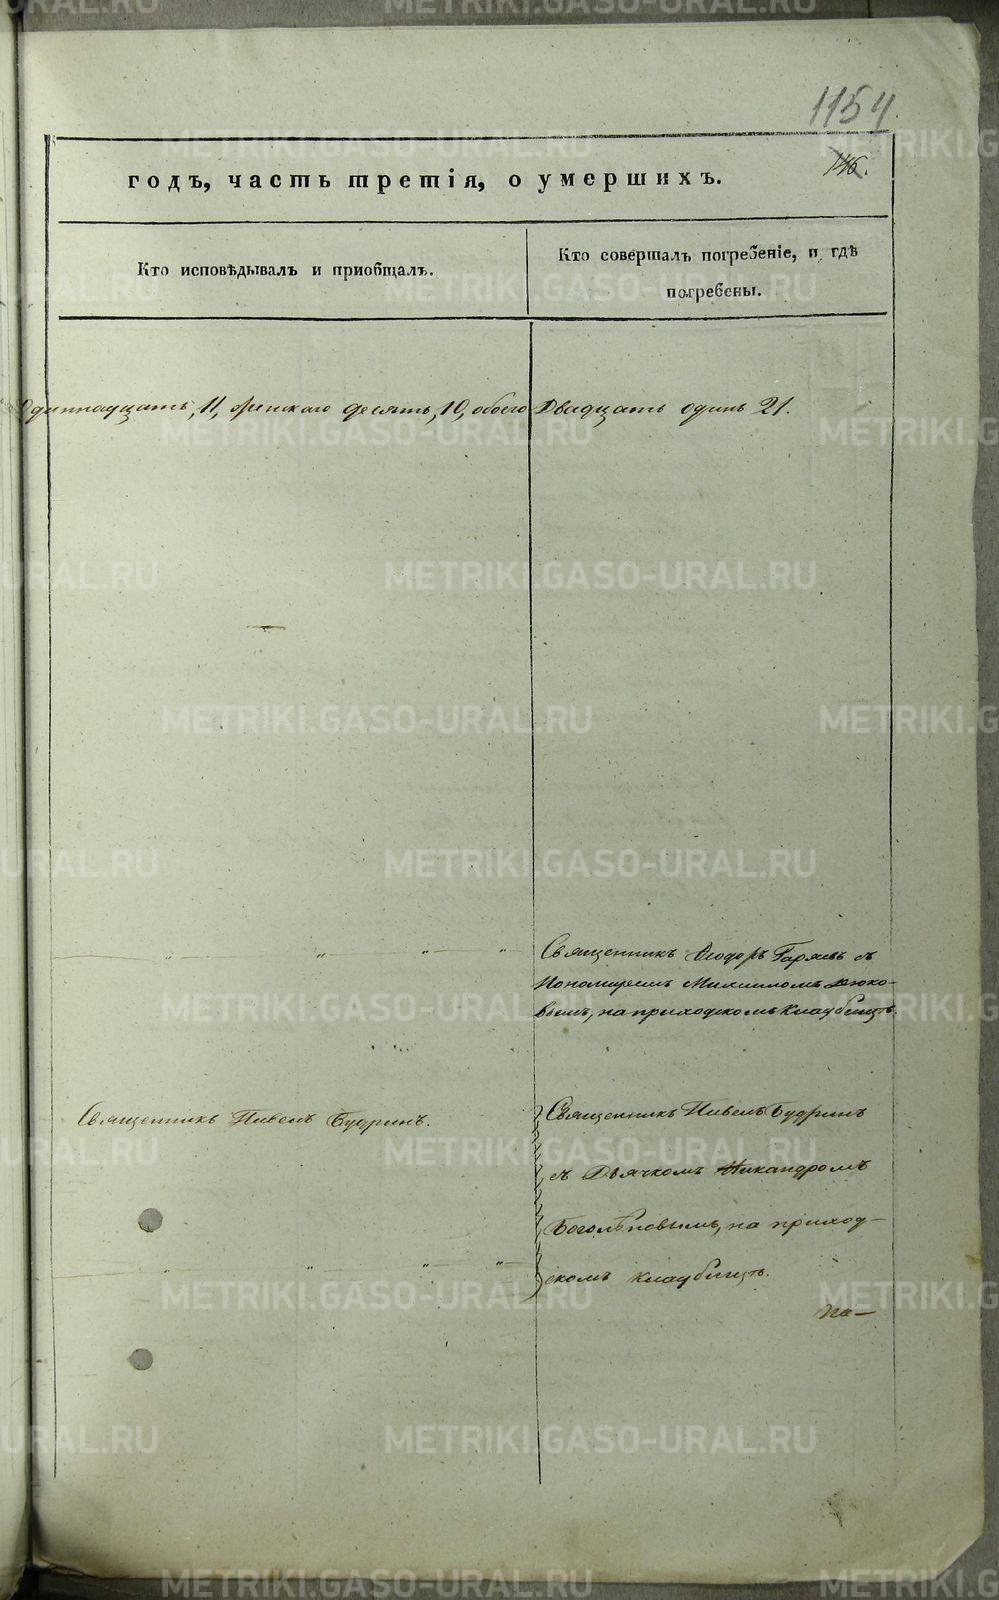 1154
146.
годъ, часть третія, о умершихъ.
Кто исповѣдывалъ и пріобщалъ.
Кто совершалъ погребеніе, и гдѣ
погребены.
Одиннадцать, 11, женскаго десять, 10, обоего Двадцать одинъ 21.
Священникъ Ѳеодоръ Гаряевъ съ
Пономаремъ Михаиломъ
вымъ, на приходскомъ кладбищѣ.
Священникъ Павелъ Будринъ.
Священникъ Павелъ Будринъ
съ Дьячкомъ Никандромъ
Боголѣповымъ, на приход-
скомъ кладбищѣ.
На-
METRIKI.GASO-URAL.RU